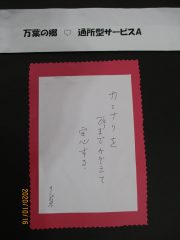 万葉の郷 ♡ 通所型サービスA
カミナリを
までかぞえて
安心する
2020/10/16